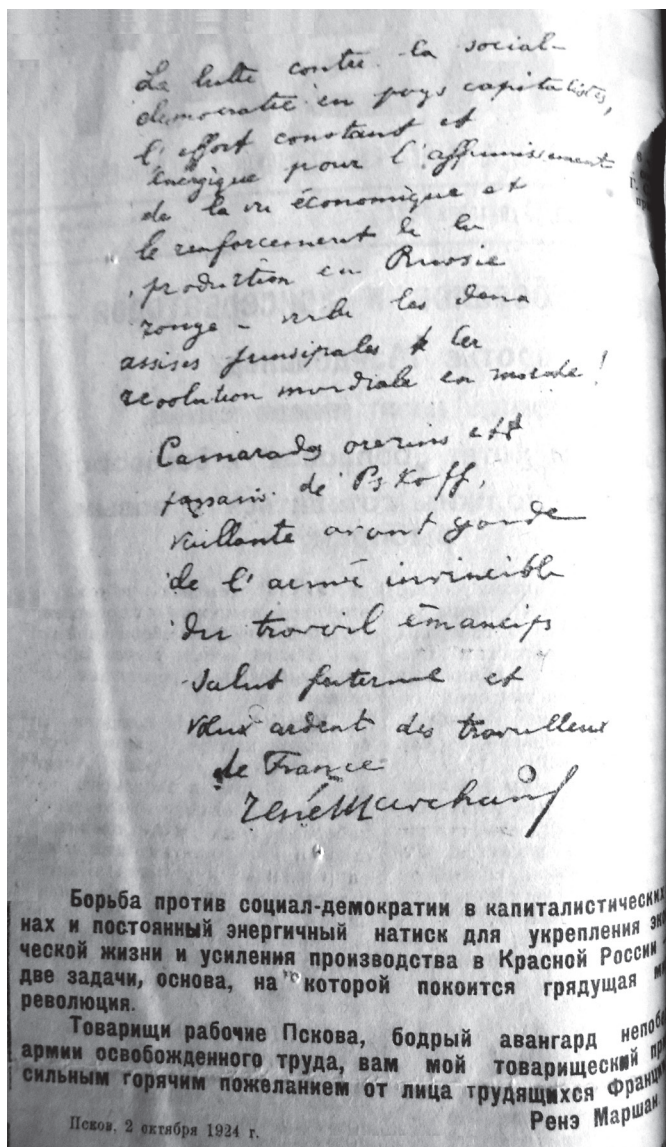 La lutte contre la social-
démocratie en pays capitalistes,
l'effort constant et
énergique pour l'affermissement
de la vie économique et
le renforcement de la
production en Russie
rouge – les deux
assises principales de la
révolution mondiale en marche!
Camarades ouvriers et
de Pskoff,
vaillante avant garde
de l'armée invincible
du travail émancipé
salut fraternel et
vœux ardent des travailleurs
de France
René Marchand
Борьба против социал-демократии в капиталистических
нах и постоянный энергичный натиск для укрепления эко
ческой жизни и усиления производства в Красной России
две задачи, основа, на которой покоится грядущая
революция.
Товарищи рабочие Пскова, бодрый авангард непобе
армии освобожденного труда, вам мой товарищеский при
сильным горячим пожеланием от лица трудящихся Франци
Ренэ Маршан.
Псков, 2 октября 1924 г.